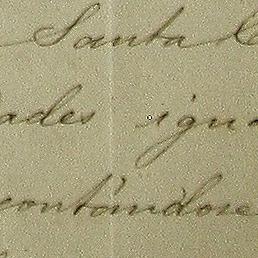 Santa C
ades igua
contándose